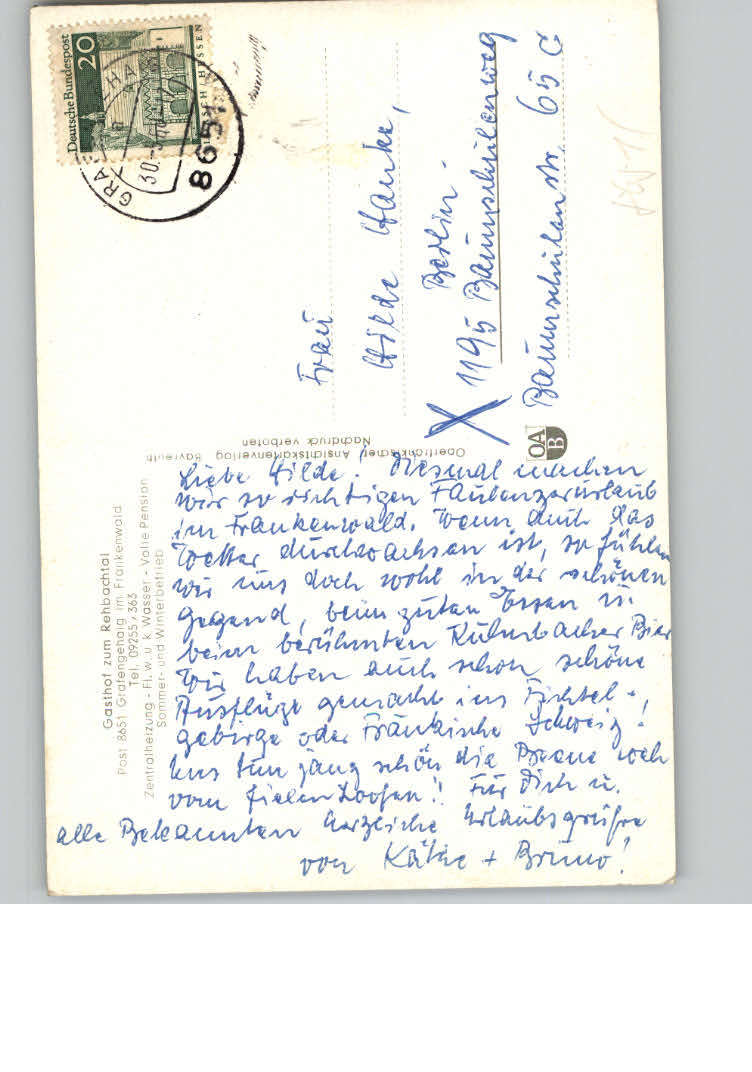 Deutsche Bundespost
20
8651
30.
Frau
Hilde Hanke,
Berlin-
1195 Baumschulenweg
Baumschulenstr. 65 C
OA
B
Oberfränkischer Ansichtskartenverlag Bayreuth
Nachdruck verboten
Gasthof zum Rehbachtal
Post 8651 Grafengehaig im Frankenwald
Tel. 09255/363
Zentralheizung - Fl. w. u. k Wasser - Volle Pension
Sommer- und Winterbetrieb
Liebe Hilde! Diesmal machen
wir so richtigen Faulenzerurlaub
im Frankenwald. Wenn auch das
Wetter durchwachsen ist, so fühlen
wir uns doch wohl in der schönen
Gegend, beim guten Essen u.
beim berühmten Kulmbacher Bier
Wir haben auch schon schöne
Ausflüge gemacht ins Fichtel-
gebirge oder Fränkische Schweiz!
Uns tun ganz schön die Beene weh
vom fielen Loofen!! Für Dich u.
alle Bekannten herzliche Urlaubsgrüße
von Käthe + Bruno!